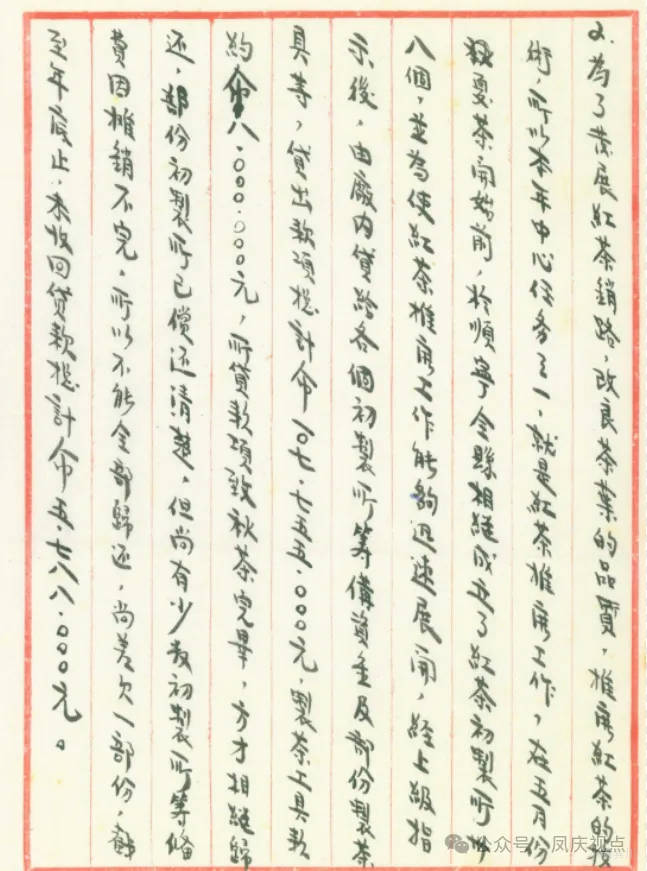 2.為了發展紅茶銷路,改良茶葉的品質,推廣紅茶的技
術,所以本年中心任務之一,就是紅茶推廣工作,在五月份
夏茶開始前,於順寧全縣相繼成立了紅茶初製所
八個,並為使紅茶推廣工作能夠迅速展開,經上級指
示後,由廠內貸給各個初製所籌備資金及部份製茶
具等,貸出款項總計幣一〇七.七五五.〇〇〇元,製茶工具款
約幣八.〇〇〇.〇〇〇元,所貸款項致秋茶完畢,方才相繼歸
还,部份初製所已償还清楚,但尚有少数初製所籌備
費因攤銷不完,所以不能全部歸还,尚差欠一部份,截
至年底止,未收回貸款總計幣五.七八八.〇〇〇元。
公众号·凤庆视点